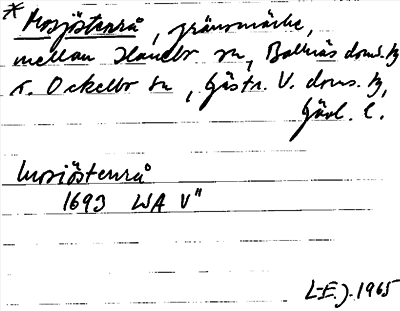 * Mosjöstenrå, gränsmärke,
mellan Hanebo sn, Bollnäs doms. hg
o. Ockelbo sn, Gästr. V. doms. hg,
Gävl. l.
Mosjöstenrå
1693 LSA V"
L-E. J. 1965